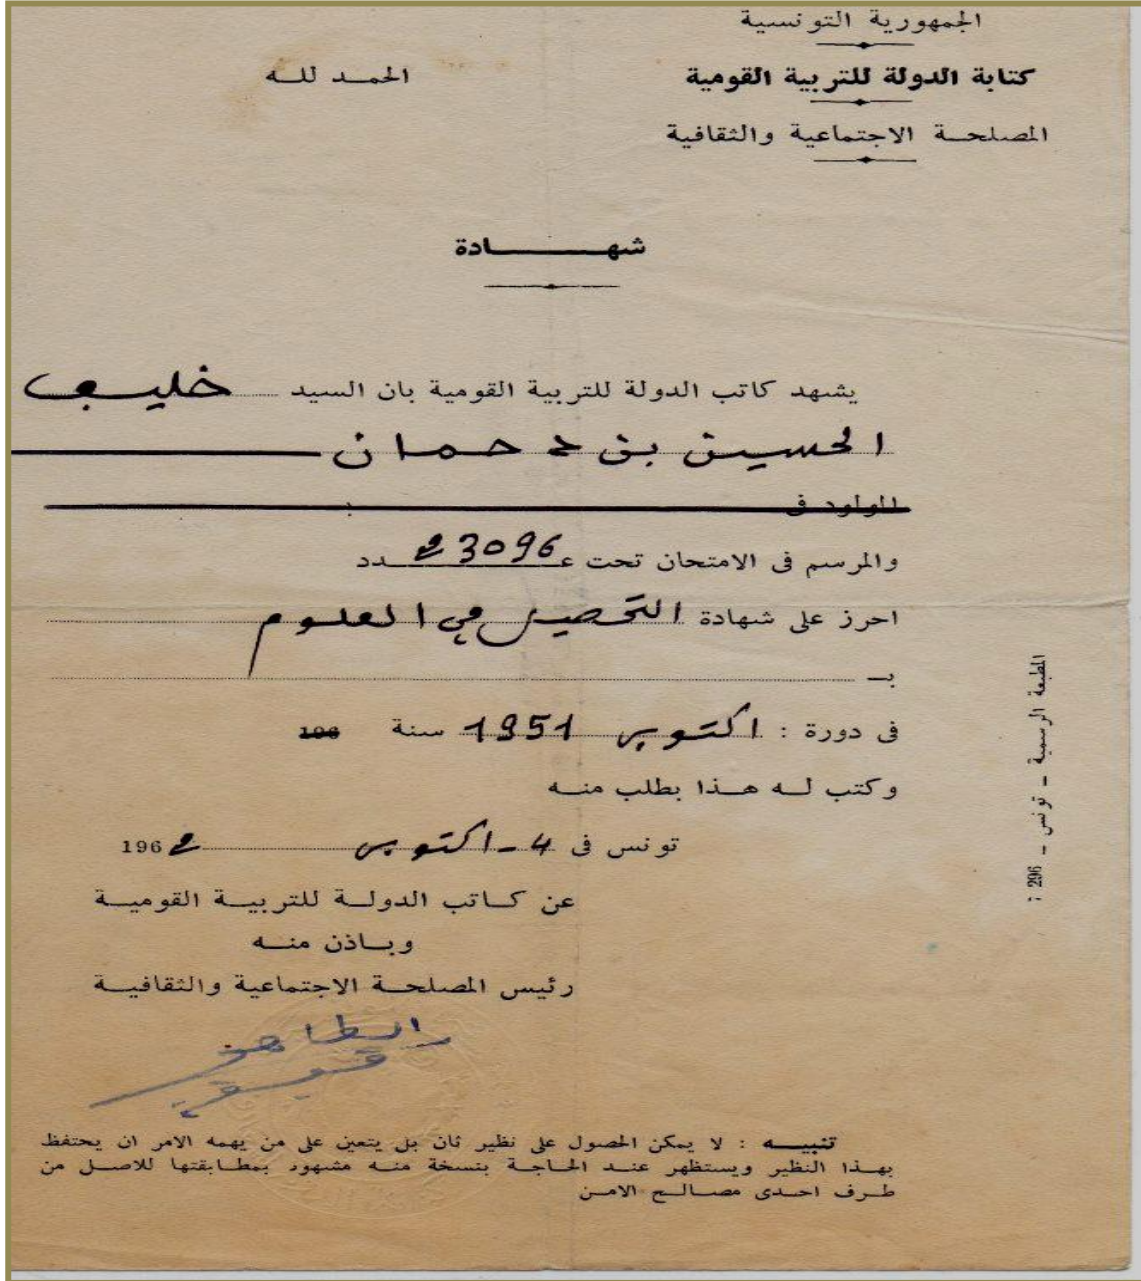 الجمهورية التونسية
كتابة الدولة للتربية القومية
المصلحة الاجتماعية والثقافية
الحمد لله
شهادة
يشهد كاتب الدولة للتربية القومية بان السيد خليف
الحسين بن حمان
المولود في :
والمرسم في الامتحان تحت عـ 23096 ـدد
احرز على شهادة التحصيل في العلوم
بـ
في دورة : اكتوبر 1951 سنة 196
وكتب له هذا بطلب منه
تونس في 4 - اكتوبر 1962
عن كاتب الدولة للتربية القومية
وباذن منه
رئيس المصلحة الاجتماعية والثقافية
الطاهر
تنبيه : لا يمكن الحصول على نظير ثان بل يتعين على من يهمه الامر ان يحتفظ
بهذا النظير ويستظهر عند الحاجة بنسخة منه مشهود بمطابقتها للاصل من
طرف احدى مصالح الامن
المطبعة الرسمية - تونس - 296 :